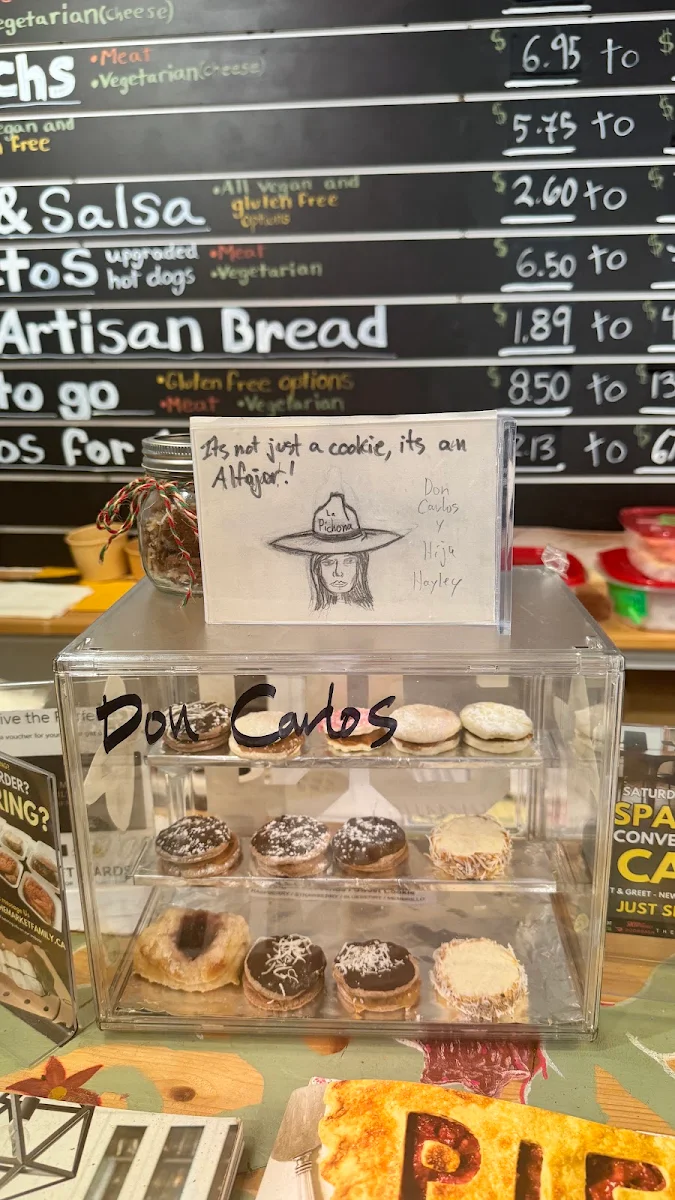 egetarian(cheese)
chs •Meat $6.95 to $
•Vegetarian(cheese)
egan and $5.75 to $
free
& Salsa •All Vegan and $2.60 to $
gluten free
options
tos upgraded •Meat $6.50 to $
hot dogs •Vegetarian
Artisan Bread $1.89 to $4
to go •Gluten free options $8.50 to $13
•Meat •Vegetarian
os for 2.13 to $6
Its not just a cookie, its an
Alfajor!
La
Pichona
Don
Carlos
y
Hija
Hayley
Don Carlos
ive the
a voucher for your
RDER?
RING?
EMARKETFAMILY.CA
SATURD
SPA
CONVE
CA
T & GREET - NEW
JUST S
PIE